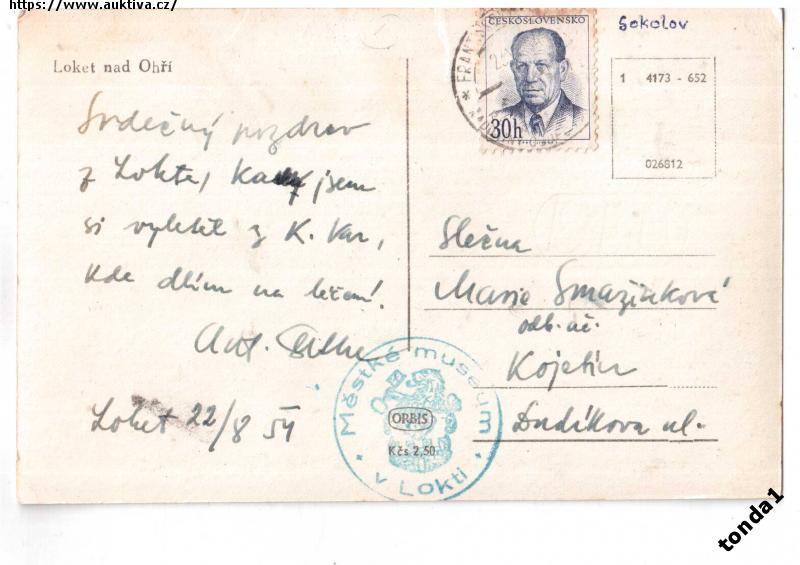 https://www.auktiva.cz/
Loket nad Ohří
Srdečný pozdrav
z Lokte, kam jsem
si vyletěl z K. Var,
kde dlím na léčení.
Ant.
Loket 22/8 54
ČESKOSLOVENSKO
30h
Sokolov
1 4173 - 652
026812
Slečna
Marie Smazinková
odb. uč.
Kojetín
Dudíkova ul.
Městké museum
v Lokti
ORBIS
Kčs 2,50
tonda1